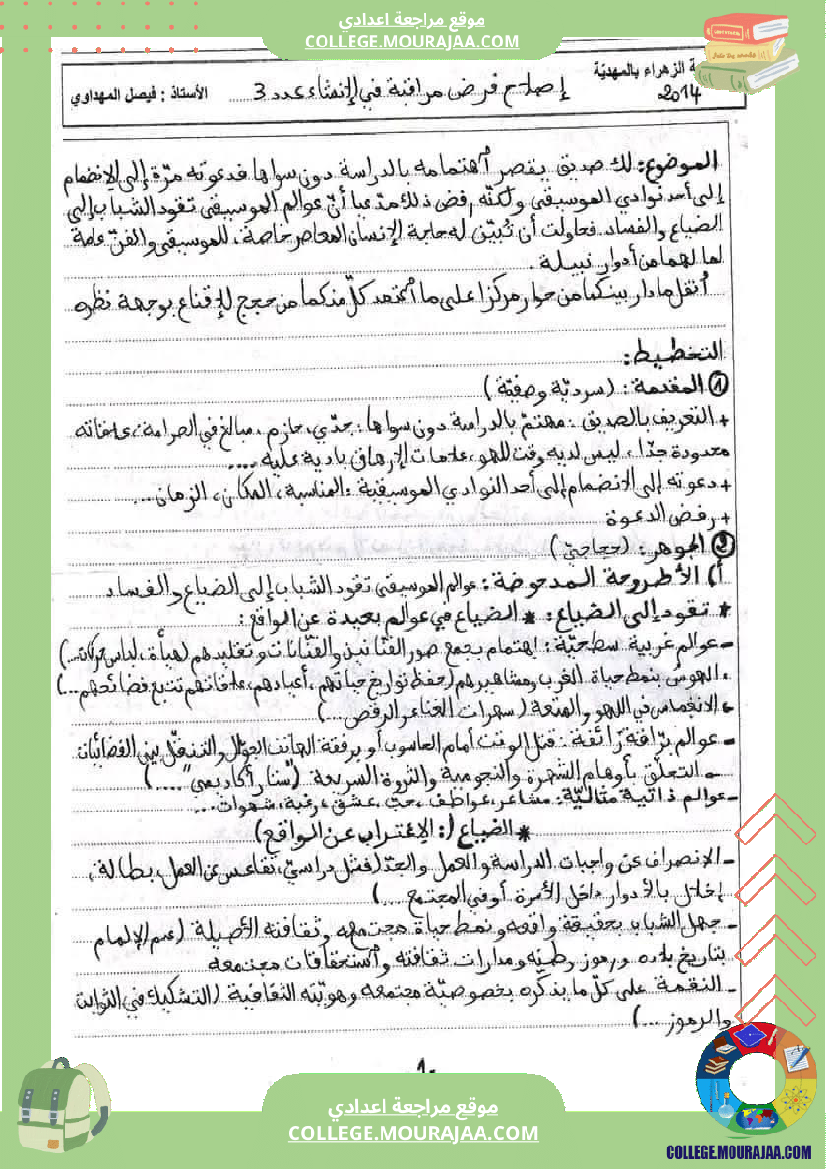 موقع مراجعة اعدادي
COLLEGE.MOURAJAA.COM
ة الزهراء بالمهديّة
2014
إصلاح فرض مراقبة في الإنشاء عدد 3
الأستاذ : فيصل المهداوي
الموضوع: لك صديق يقصر اُهتمامه بالدراسة دون سواها فدعوته مرّة إلى الانضمام
إلى أحد نوادي الموسيقى ولكنّه رفض ذلك مدّعيا أنّ عوالم الموسيقى تقود الشباب إلى
الضياع والفساد. فحاولت أن تُبيّن له حاجة الإنسان المعاصر خاصة، للموسيقى والفنّ عامة
لما لهما من أدوار نبيلة.
اُنقل ما دار بينكما من حوار مركزا على ما اُعتمد كلّ منكما من حجج للإقناع بوجهة نظره
التخطيط:
① المقدمة: (سرديّة وصفيّة)
+ التعريف بالصديق: مهتمّ بالدراسة دون سواها: جدّي، حازم، مبالغ في الصرامة، علاقاته
محدودة جدّا، ليس لديه وقت للهو، علامات الإرهاق بادية عليه....
+ دعوته إلى الانضمام إلى أحد النوادي الموسيقية: المناسبة، المكان، الزمان...
+ رفض الدعوة
② الجوهر: (حجاجيّ)
أ) الأطروحة المدحوضة: عوالم الموسيقى تقود الشباب إلى الضياع والفساد
* تقود إلى الضياع: * الضياع في عوالم بعيدة عن الواقع:
- عوالم غربية سطحيّة: اهتمام بجمع صور الفنّانين والفنّانات وتقليدهم (هيأة، لباس، حركات...)
. الهوس بنمط حياة الغرب ومشاهيرهم (حفظ تواريخ حياتهم، أعيادهم، علاقاتهم تتبع فضائحهم...)
. الانغماس في اللهو والمتعة (سهرات الغناء والرقص...)
- عوالم برّاقة زائفة: قتل الوقت أمام الحاسوب أو برفقة الهاتف الجوّال والتنقّل بين الفضائيات
- التعلّق بأوهام الشهرة والنجومية والثروة السريعة ("ستار أكاديمي"....)
- عوالم ذاتية مثاليّة: مشاعر، عواطف، حبّ، عشق، رغبة، شهوات...
* الضياع (: الإغتراب عن الواقع)
- الانصراف عن واجبات الدراسة والعمل والجدّ (فشل دراسيّ، تقاعس عن العمل، بطالة،
إخلال بالأدوار داخل الأسرة أو في المجتمع ...)
- جهل الشباب بحقيقة واقعه ونمط حياة مجتمعه وثقافته الأصيلة (عدم الإلمام
بتاريخ بلاده ورموز وطنه ومدارات ثقافته واُستحقاقات مجتمعه
- النقمة على كلّ ما يذكّره بخصوصيّة مجتمعه وهويّته الثقافية (التشكيك في الثوابت
والرموز...)
-1-
موقع مراجعة اعدادي
COLLEGE.MOURAJAA.COM
COLLEGE.MOURAJAA.COM